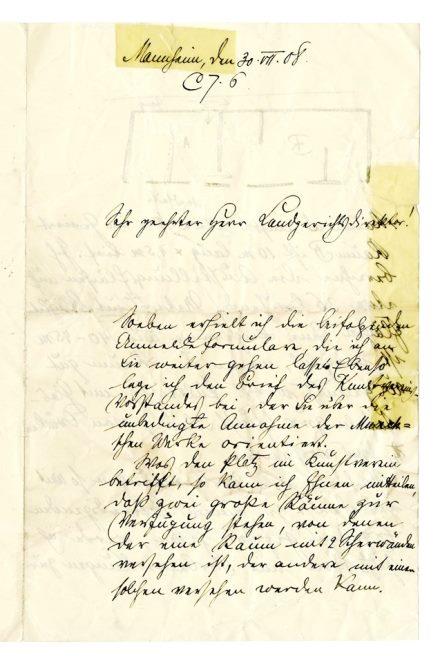 Mannheim, den 30.VII.08.
C 7. 6
Sehr geehrter Herr Landgerichtsdirektor!
Soeben erhielt ich die beifolgenden
Anmeldeformulare, die ich an
Sie weiter gehen lasse. Ebenso
lege ich den Brief des Kunstvereins-
Vorstandes bei, der Sie über die
unbedingte Annahme der
schen Werke orientiert.
Was den Platz im Kunstverein
betrifft, so kann ich Ihnen mitteilen,
daß zwei große Räume zur
Verfügung stehen, von denen
der eine Raum mit 2 Scherwänden
versehen ist, der andere mit einer
solchen versehen werden kann.